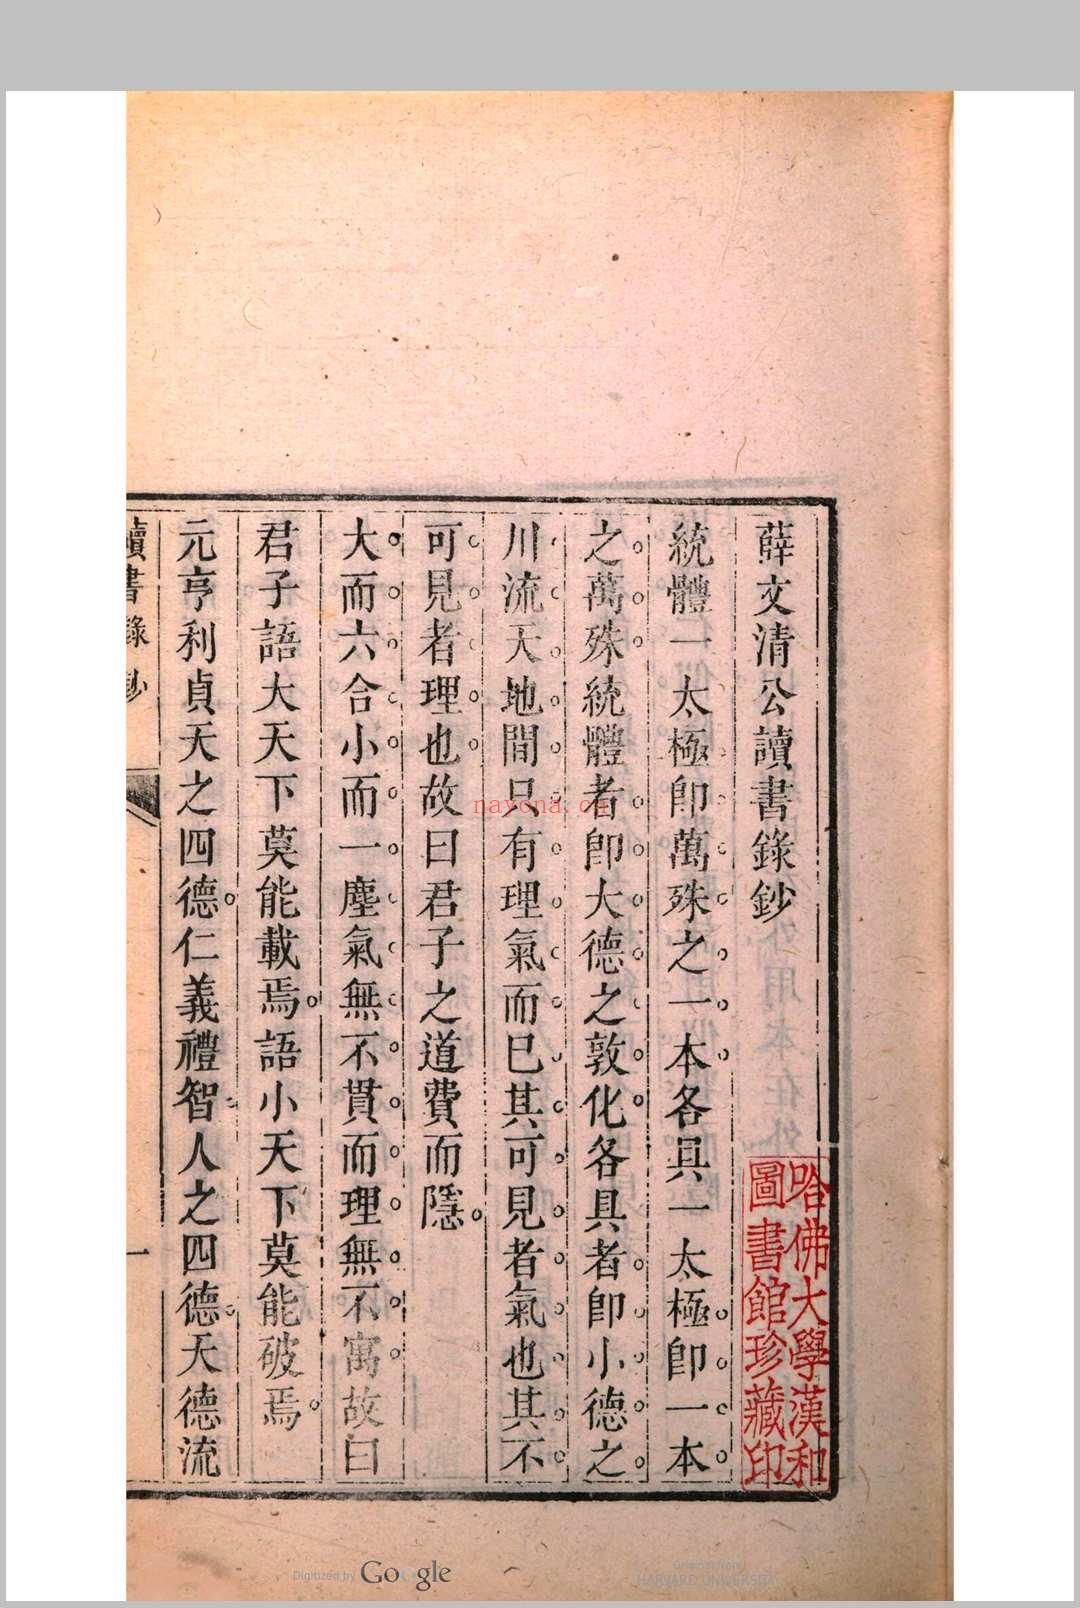 薛文清公讀書錄鈔
統體一太極卽萬殊之一本各具一太極卽一本
之萬殊統體者卽大德之敦化各具者卽小德之
川流天地間只有理氣而已其可見者氣也其不
可見者理也故曰君子之道費而隱
大而六合小而一塵氣無不貫而理無不寓故曰
君子語大天下莫能載焉語小天下莫能破焉
元亨利貞天之四德仁義禮智人之四德天德流
讀書錄鈔
一
哈佛大學漢和
圖書館珍藏印
nayona.cn
Digitized by Google
Original from
HARVARD UNIVERSITY